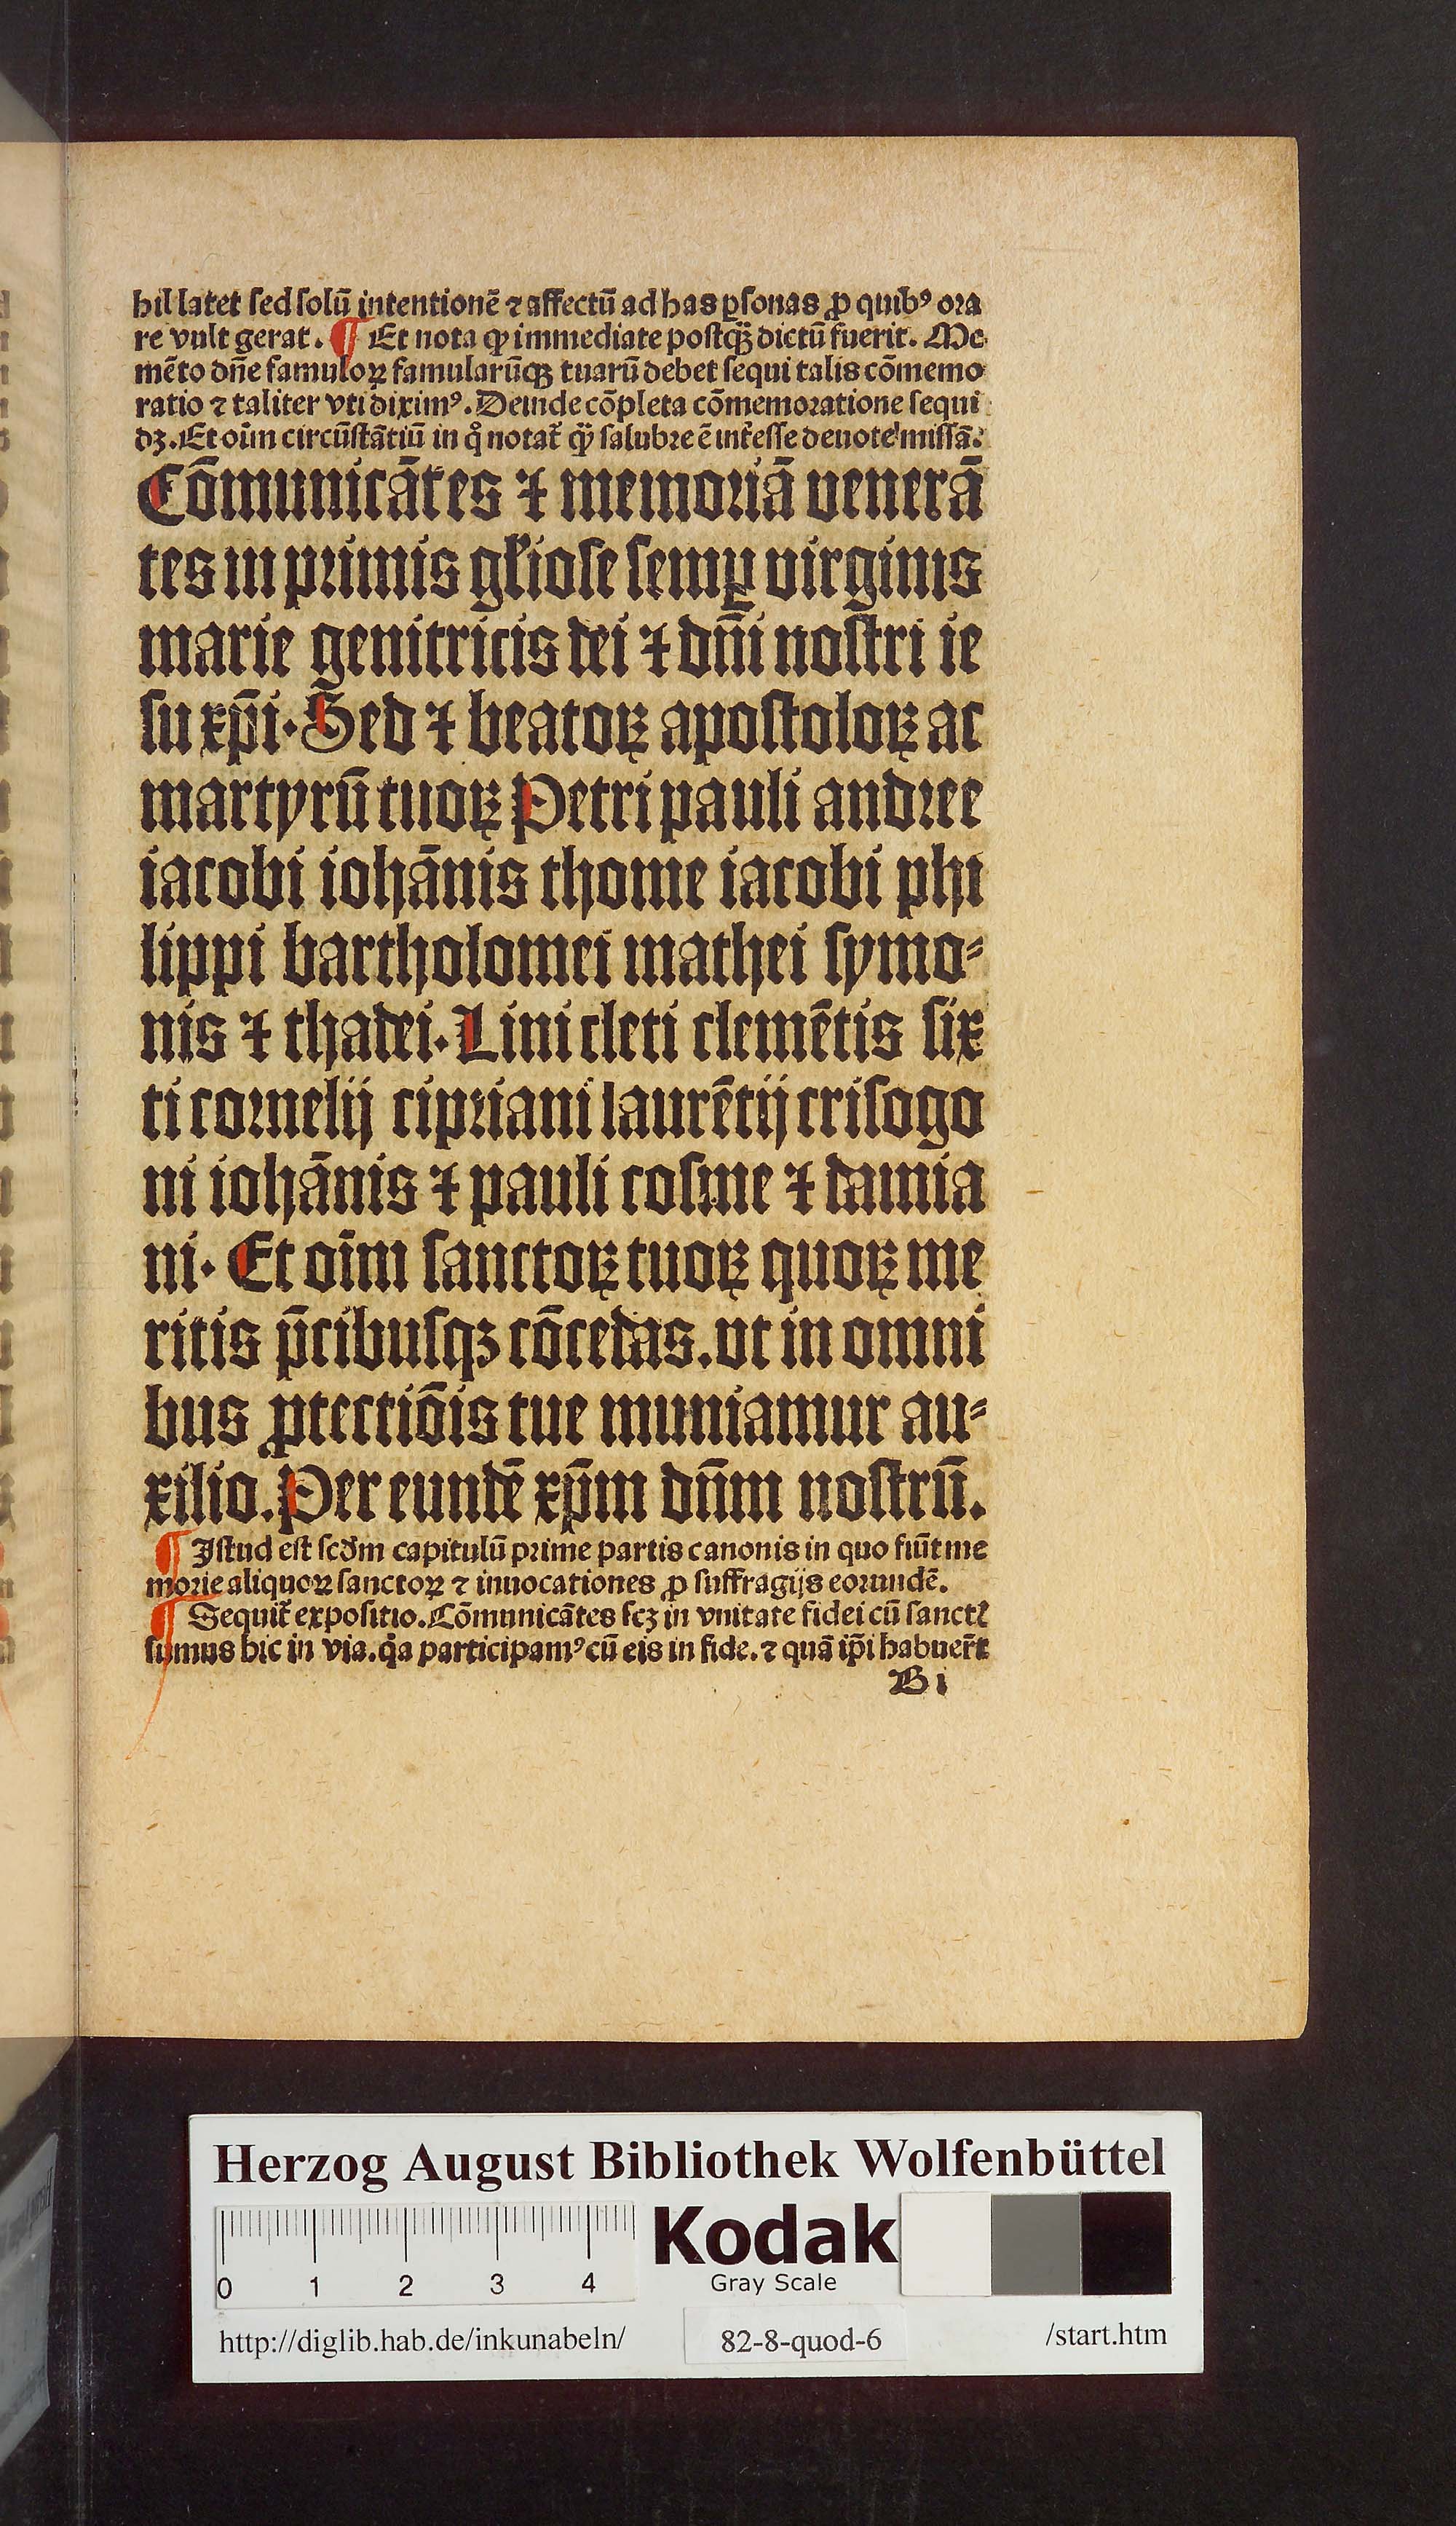 hil latet sed solū intentionē ⁊ affectū ad has ꝑsonas ꝓ quibꝰ ora
re vult gerat. ¶ Et nota ꝙ immediate postqꝫ̄ dictū fuerit. Me
mēto dn̄e famuloꝝ famularūqꝫ tuarū debet sequi talis cōmemo
ratio ⁊ taliter vti diximꝰ. Deinde cōpleta cōmemoratione sequi
dꝫ. Et oīm circūstātiū in q̊ notat᷑ ꝙ̈ salubre ē int̄esse deuote missā.
Cōmunicātes ⁊ memoriā venerā
tes in primis gl̄iose semꝑ virginis
marie genitricis dei ⁊ dn̄i nostri ie
su xp̄i. Sed ⁊ beatoꝝ apostoloꝝ ac
martyrū tuoꝝ Petri pauli andree
iacobi iohānis thome iacobi phi
lippi bartholomei mathei symo⸗
nis ⁊ thadei. Lini cleti clemētis six
ti cornelij cipriani laurētij crisogo
ni iohānis ⁊ pauli cosme ⁊ damia
ni. Et oīm sanctoꝝ tuoꝝ quoꝝ me
ritis p̄cibusqꝫ cōcedas. vt in omni
bus ꝓtectiōis tue muniamur au⸗
xilio. Per eundē xp̄m dn̄m nostrū.
¶ Istud est scd̄m capitulū prime partis canonis in quo fiūt me
morie aliquoꝝ sanctoꝝ ⁊ inuocationes ꝓ suffragijs eorundē.
¶ Sequit᷑ expositio. Cōmunicātes scꝫ in vnitate fidei cū sanctꝭ
sumus hic in via. q̄a participamꝰ cū eis in fide. ⁊ quā ip̄i habuer̄t
B i
Herzog August Bibliothek Wolfenbüttel
0 1 2 3 4
Kodak
Gray Scale
http://diglib.hab.de/inkunabeln/ 82-8-quod-6 /start.htm